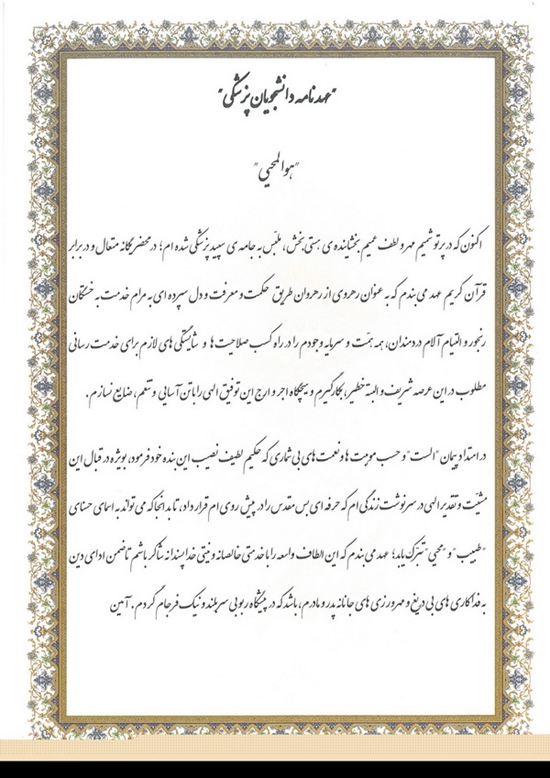 "عهدنامه دانشجویان پزشکی"
"هوالمحیی"
اکنون که در پرتو شمیم مهر و لطف عمیم بخشاینده ی هستی بخش، ملبّس به جامه ی سپید پزشکی شده ام؛ در محضر یگانه متعال و در برابر
قرآن کریم عهد می بندم که به عنوان رهروی از رهروان طریق حکمت و معرفت و دل سپرده ای به مرام خدمت به خستگان
رنجور و التیام آلام دردمندان، همه همّت و سرمایه وجودم را در راه کسب صلاحیت ها و شایستگی های لازم برای خدمت رسانی
مطلوب در این عرصه شریف و البته خطیر، بکار گیرم و هیچگاه اجر و ارج این توفیق الهی را با تن آسایی و تنعم، ضایع نسازم.
در امتداد پیمان "الست" و حسب موهبت ها و نعمت های بی شماری که حکیم لطیف نصیب این بنده خود فرمود، بویژه در قبال این
مشیّت و تقدیر الهی در سرنوشت زندگی ام که حرفه ای بس مقدس را در پیش روی ام قرار داد، تا بدانجا که می تواند به اسمای حسنای
"طبیب" و "محیی" تبرّک یابد؛ عهد می بندم که این الطاف واسعه را با خدمتی خالصانه و نیتی خداپسندانه شاکر باشم تا ضمن ادای دین
به فداکاری های بی دریغ و مهرورزی های جانانه پدر و مادرم، باشد که در پیشگاه ربوبی سربلند و نیک فرجام گردم. آمین